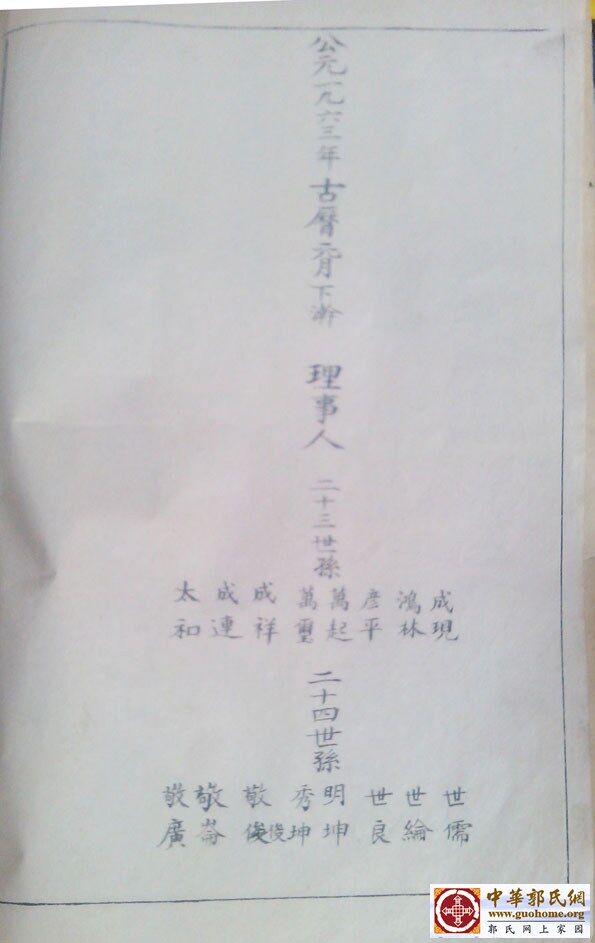 公元一九六三年古曆元月下澣
理事人
二十三世孫
成現
鴻林
彥平
萬起
萬璽
成祥
成連
太和
二十四世孫
世儒
世綸
世良
明坤
秀坤
敬俊
敬崙
敬廣
中華郭氏網
www.guohome.org
郭氏网上家园